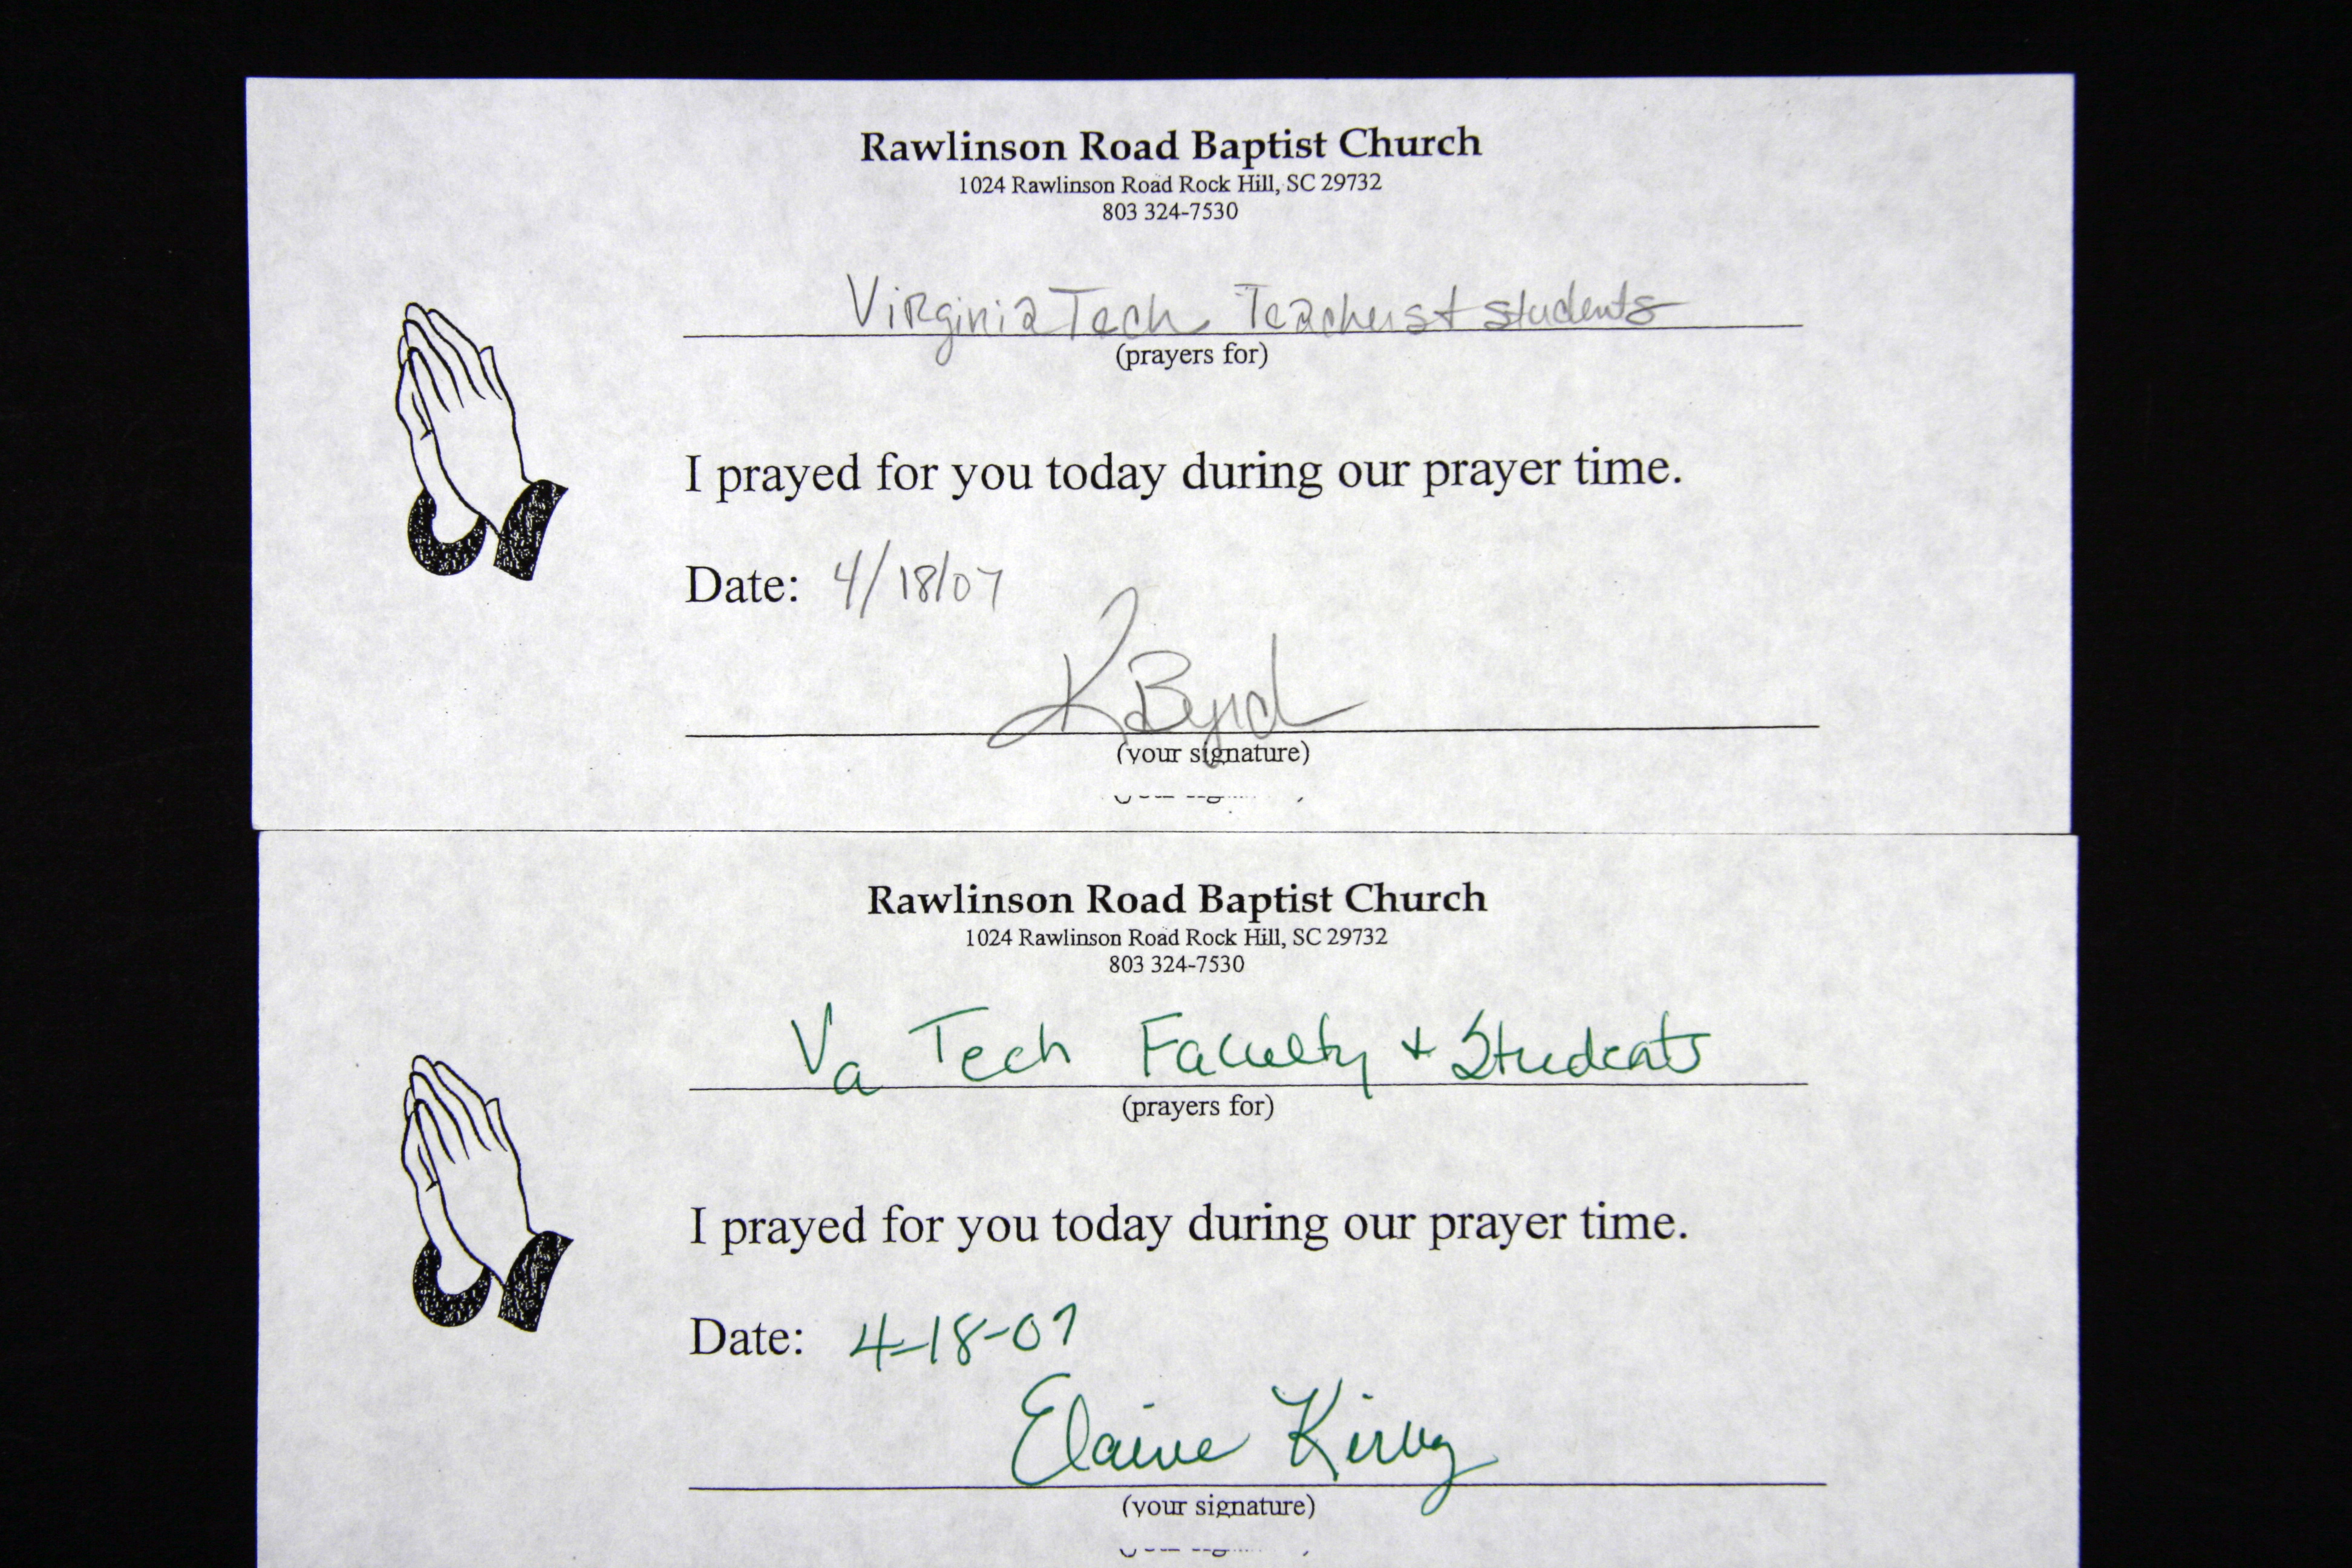 Rawlinson Road Baptist Church
1024 Rawlinson Road Rock Hill, SC 29732
803 324-7530
Virginia Tech Teachers + students
(prayers for)
I prayed for you today during our prayer time.
Date: 4/18/07
K Byrd
(your signature)
Rawlinson Road Baptist Church
1024 Rawlinson Road Rock Hill, SC 29732
803 324-7530
Va Tech Faculty + Students
(prayers for)
I prayed for you today during our prayer time.
Date: 4-18-07
Elaine
(your signature)